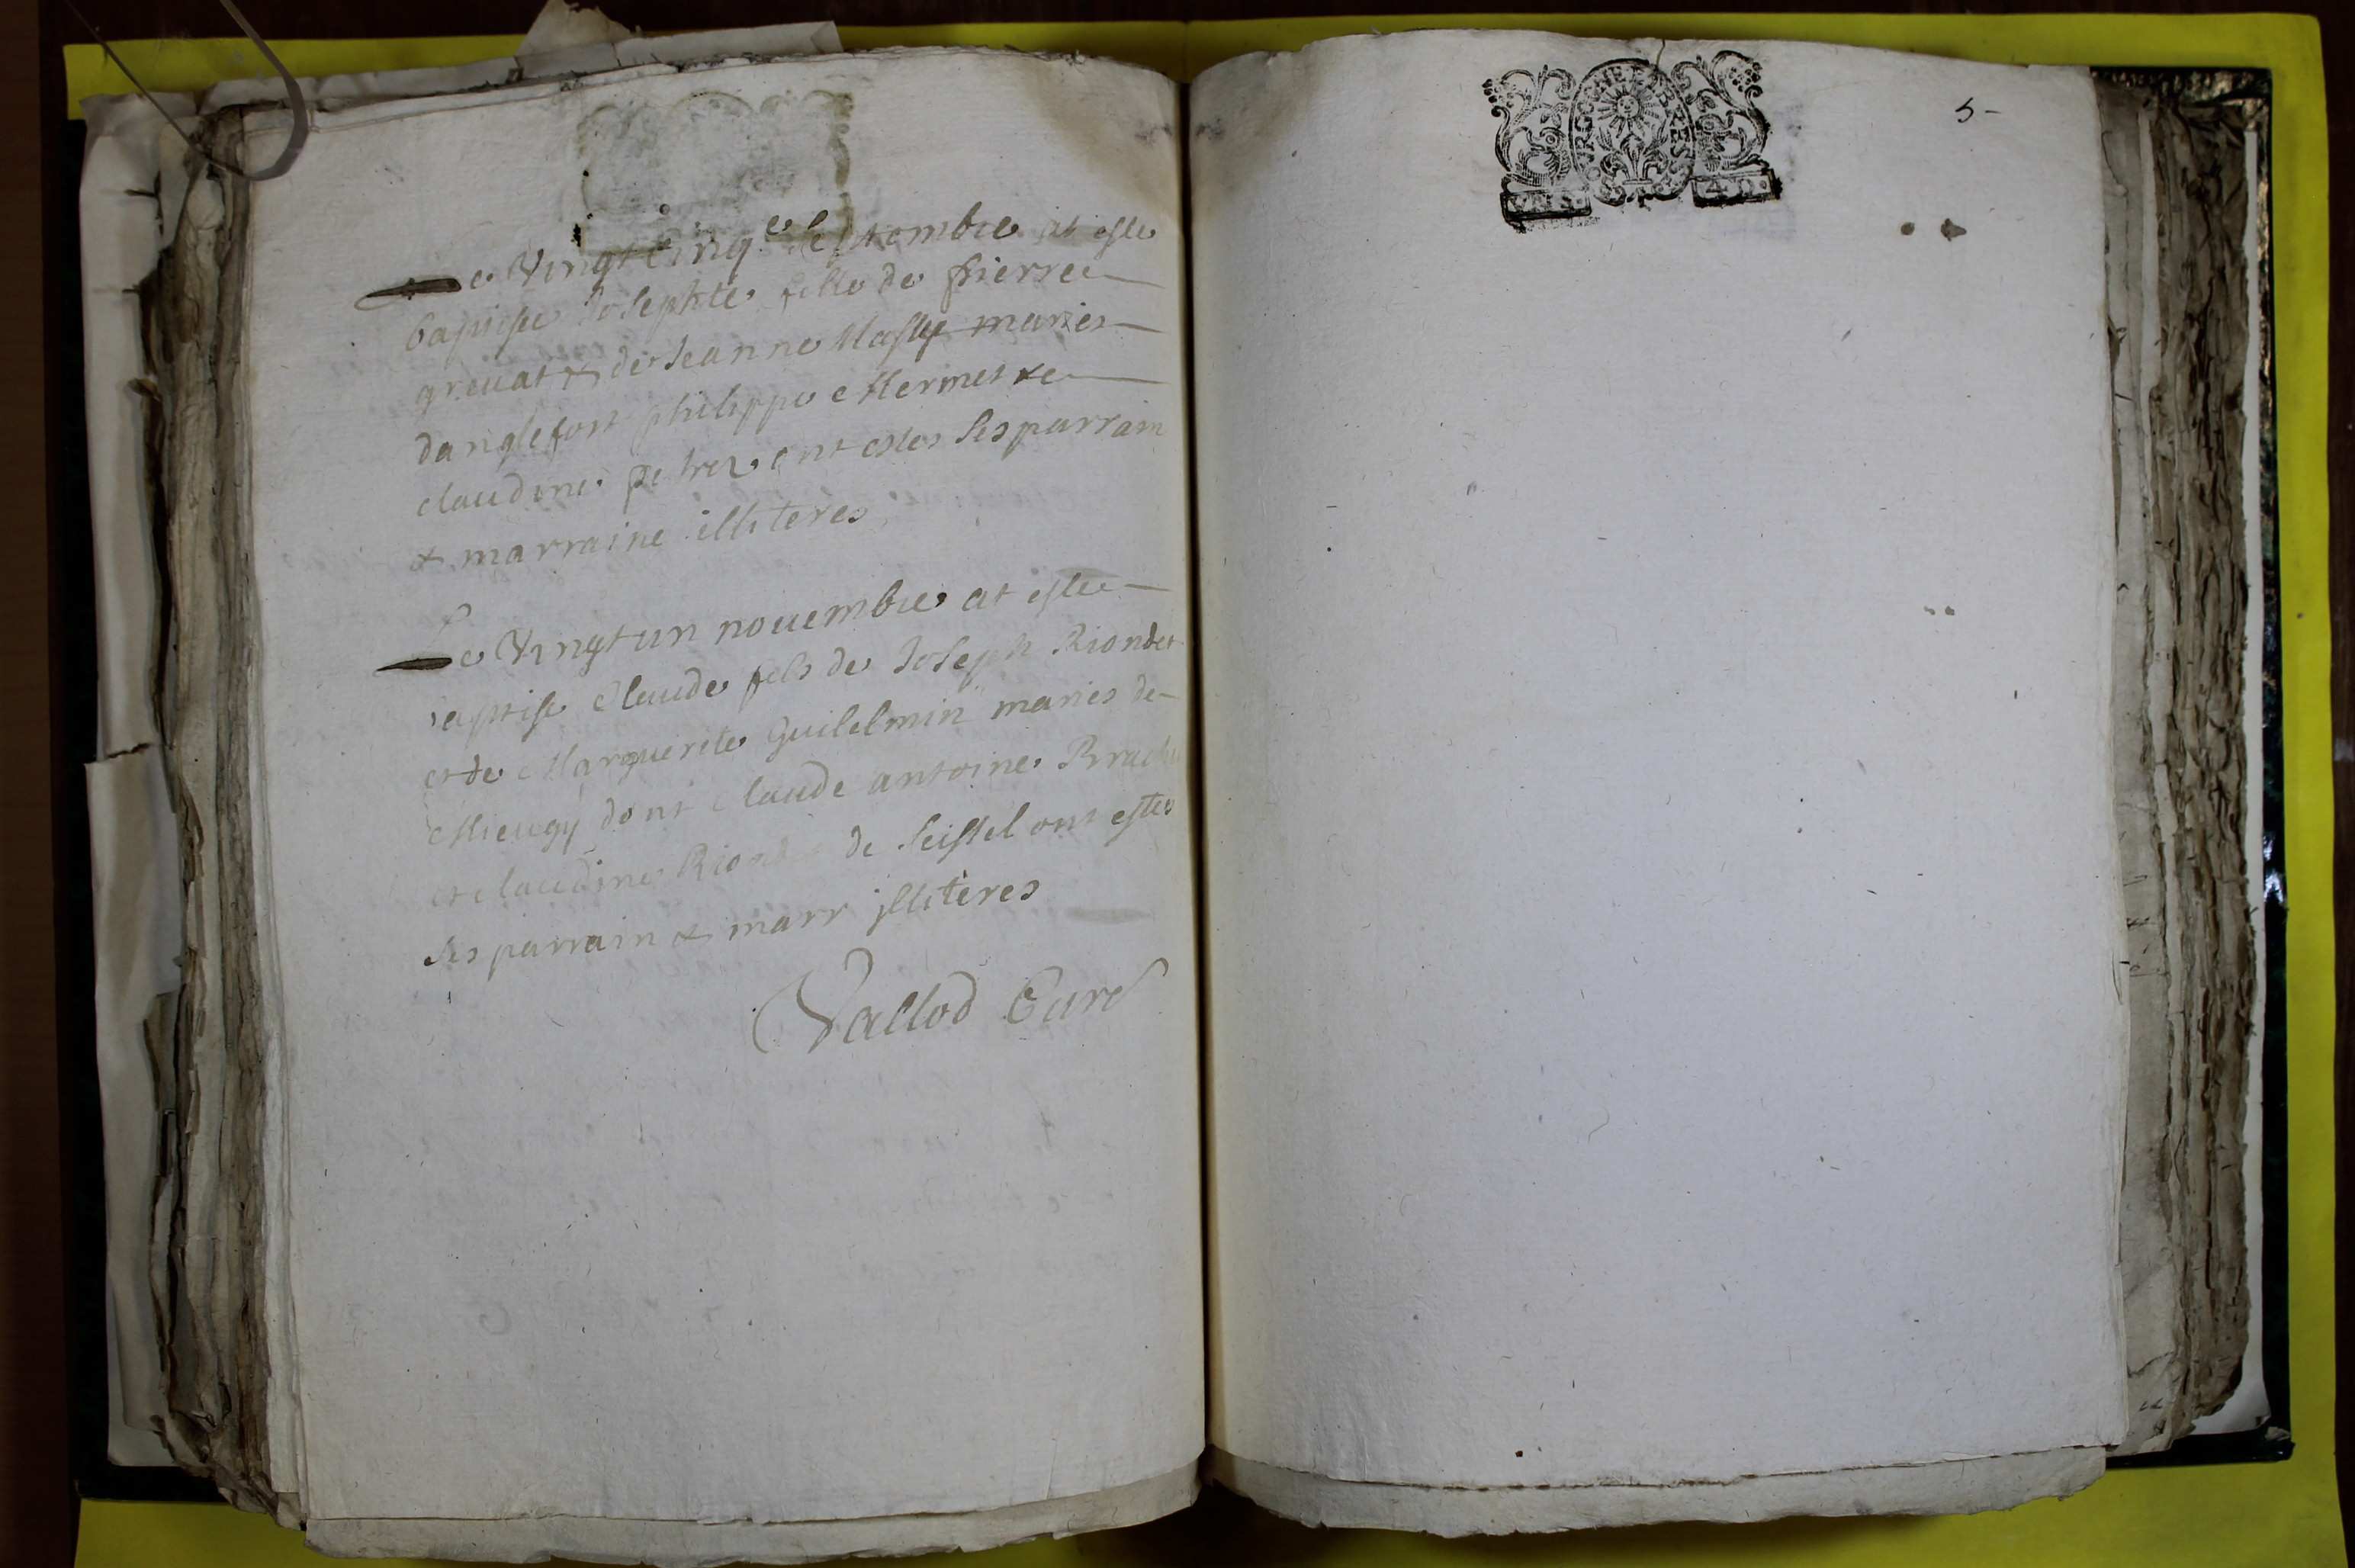 Le Vingt cinq.e septembre at este
baptisee Josephte fille de pierre
greuat & de Jeanne Masse maries
danglefort philippe Mermet &
claudine petrez ont estes ses parrain
& marraine illiteres
Le Vingt un nouembre at este
baptise Claude fils de Joseph Riondet
et de Marguerite Guilelmin maries de
Mieugy dont Claude antoine
et claudine de Seissel ont estes
ses parrain & marr jlliteres
Vallod Curé
5
BOURGOGNE BRESSE